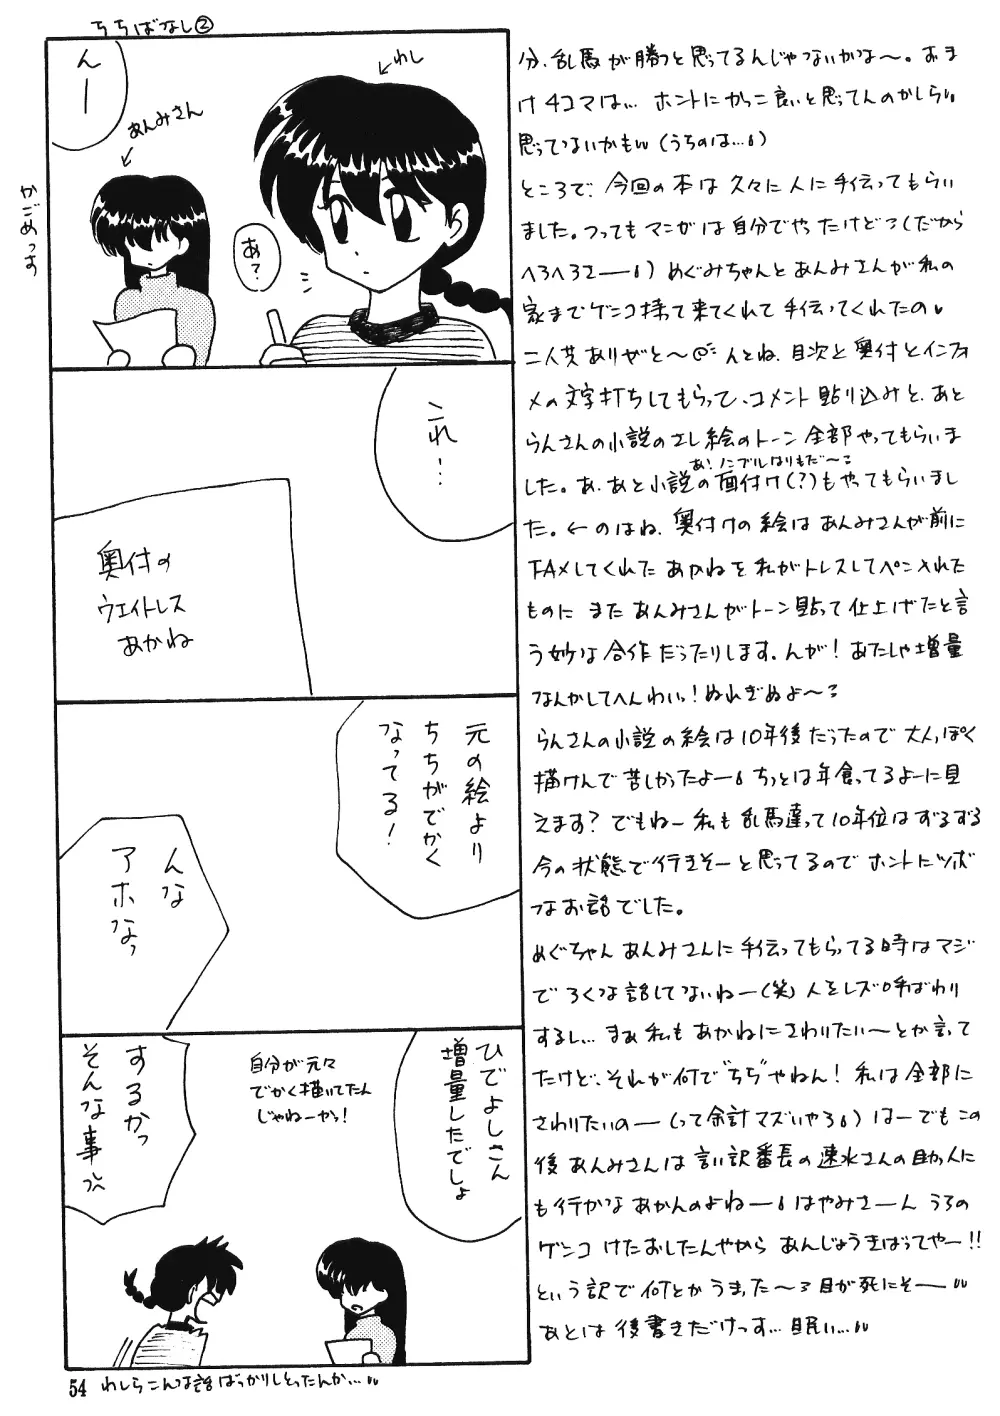 ちちばなし②
んー
わし
あんみさん
かごめっす
あ?
これ…
奥付の
ウエイトレス
あかね
元の絵より
ちちがでかく
なってる!
んな
アホなっ
ひでよしさん
増量したでしょ
自分が元々
でかく描いてたん
じゃねーかっ!
するかっ
そんな事っ
54 わしらこんな話ばっかりしとったんか…
分、乱馬が勝つと思ってるんじゃないかな〜。おま
け4コマは… ホントにかっこ良いと思ってんのかしら
思ってないかも(うちのは…)
ところで、今回の本は久々に人に手伝ってもらい
ました。つってもマンガは自分でやったけど(だから
へろへろさー)めぐみちゃんとあんみさんが私の
家までゲンコ持って来てくれて手伝ってくれたの
二人共ありがと〜 んとね、目次と奥付とインフォ
メの文字打ちしてもらって、コメント貼り込みと、あと
らんさんの小説のさし絵のトーン全部やってもらいま
あ!ノンブルはりもだ〜
した。あ、あと小説の面付け(?)もやってもらいまし
た。←のはね、奥付けの絵はあんみさんが前に
FAXしてくれたあかねを私がトレスしてペン入れた
ものにまたあんみさんがトーン貼って仕上げたと言
う妙な合作だったりします。んが!あたしゃ増量
なんかしてへんわいっ!ぬれぎぬよ〜
らんさんの小説の絵は10年後だったので大人っぽく
描けんで苦しかったよー ちっとは年食ってるよーに見
えます?でもねー私も乱馬達って10年位はずるずる
今の状態で行きそーと思ってるのでホントにツボ
なお話でした。
めぐちゃんあんみさんに手伝ってもらってる時はマジ
でろくな話してないねー(笑)人をレズ呼ばわり
するし… まぁ私もあかねにさわりたい〜とか言って
たけど、それが何で"ちち"やねん!私は全部に
さわりたいのー(って余計マズいやろ)はーでもこの
後あんみさんは言い訳番長の速水さんの助っ人に
も行かなあかんのよねー はやみさーん うちの
ゲンコ けたおしたんやから あんじょうきばってやー!!
という訳で何とかうまった〜目が死にそー
あとは後書きだけっす…眠い…